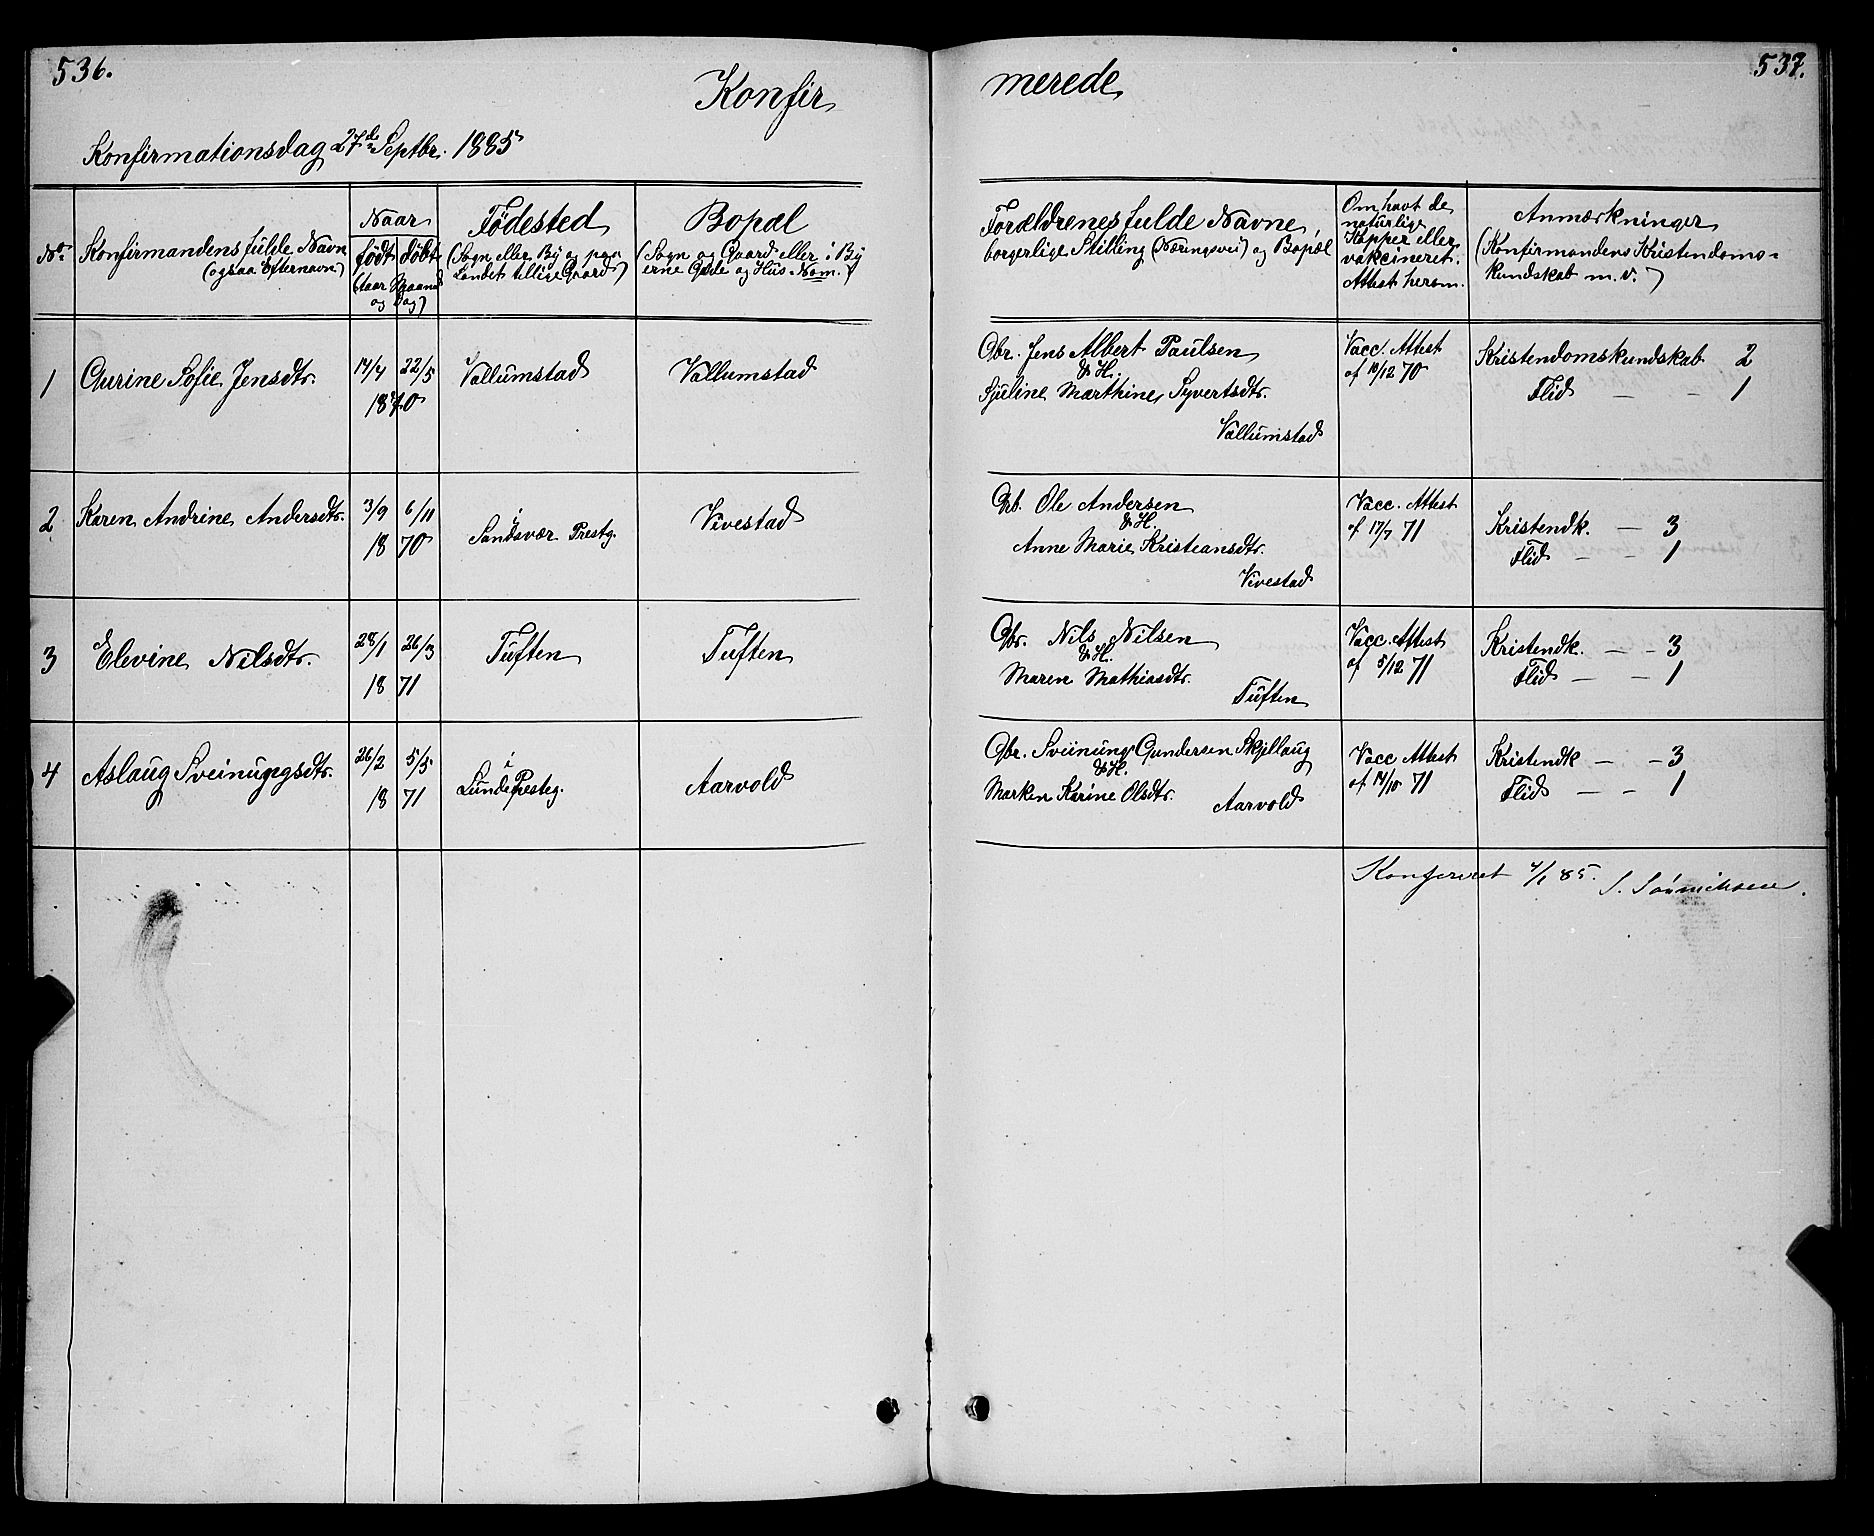 536.
Konfir
Konfirmationsdag 27de Septbr. 1885
No
Konfirmandens fulde Navn
(ogsaa Efternavn)
Naar
født døbt
(Aar Maaned
og Dag)
Fødested
(Sogn eller By og paa
Landet tillige Gaard)
Bopæl
(Sogn og Gaard eller i By
erne Gade og Hus Nom.)
1
Gurine Sofie Jensdtr.
14/4 22/5
1870
Vallumstad
Vallumstad
2
Karen Andrine Andersdtr.
3/9 6/11
18 70
i
Sandsvær Prestg.
Vivestad
3
Elevine Nilsdtr.
28/1 26/3
18 71
Tuften
Tuften
4
Aslaug Sveinungsdtr.
26/2 5/5
18 71
i
Lunde Presteg.
Aarvold
537.
merede
Forældrenes fulde Navne,
borgerlige Stilling (Næringsvei) og Bopæl
Om havt de
naturlige
Kopper eller
vakcineret.
Attest herom.
Anmærkninger
(Konfirmandens Kristendoms-
kundskab m.v.)
Gbr. Jens Albert Paulsen
& H.
Sjuline Marthine Syvertsdtr.
Vallumstad
Vacc. Attest
af 10/12 70
Kristendomskundskab 2
Flid — - 1
Gb. Ole Andersen
& H.
Anne Marie Kristiansdtr.
Vivestad
Vacc. Attest
af 17/7 71
Kristendk. — 3
Flid — - 1
Gbr. Nils Nilsen
& H.
Maren Mathiasdtr.
Tuften
Vacc. Attest
af 5/12 71
Kristendk. — - 3
Flid — - 1
Gbr. Sveinung Gundersen Skjellaug
& H.
Marken Karine Olsdtr.
Aarvold
Vacc Attest
af 14/10 71
Kristendk — - 3
Flid — - 1
Konfereret 85. S. Sønnichsen.